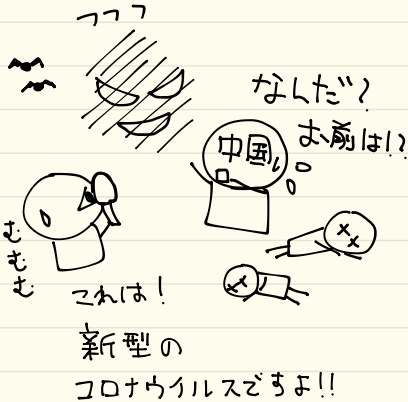 フフフ
なんだ?
お前は!?
中国
むむむ
これは!
新型の
コロナウイルスですよ!!